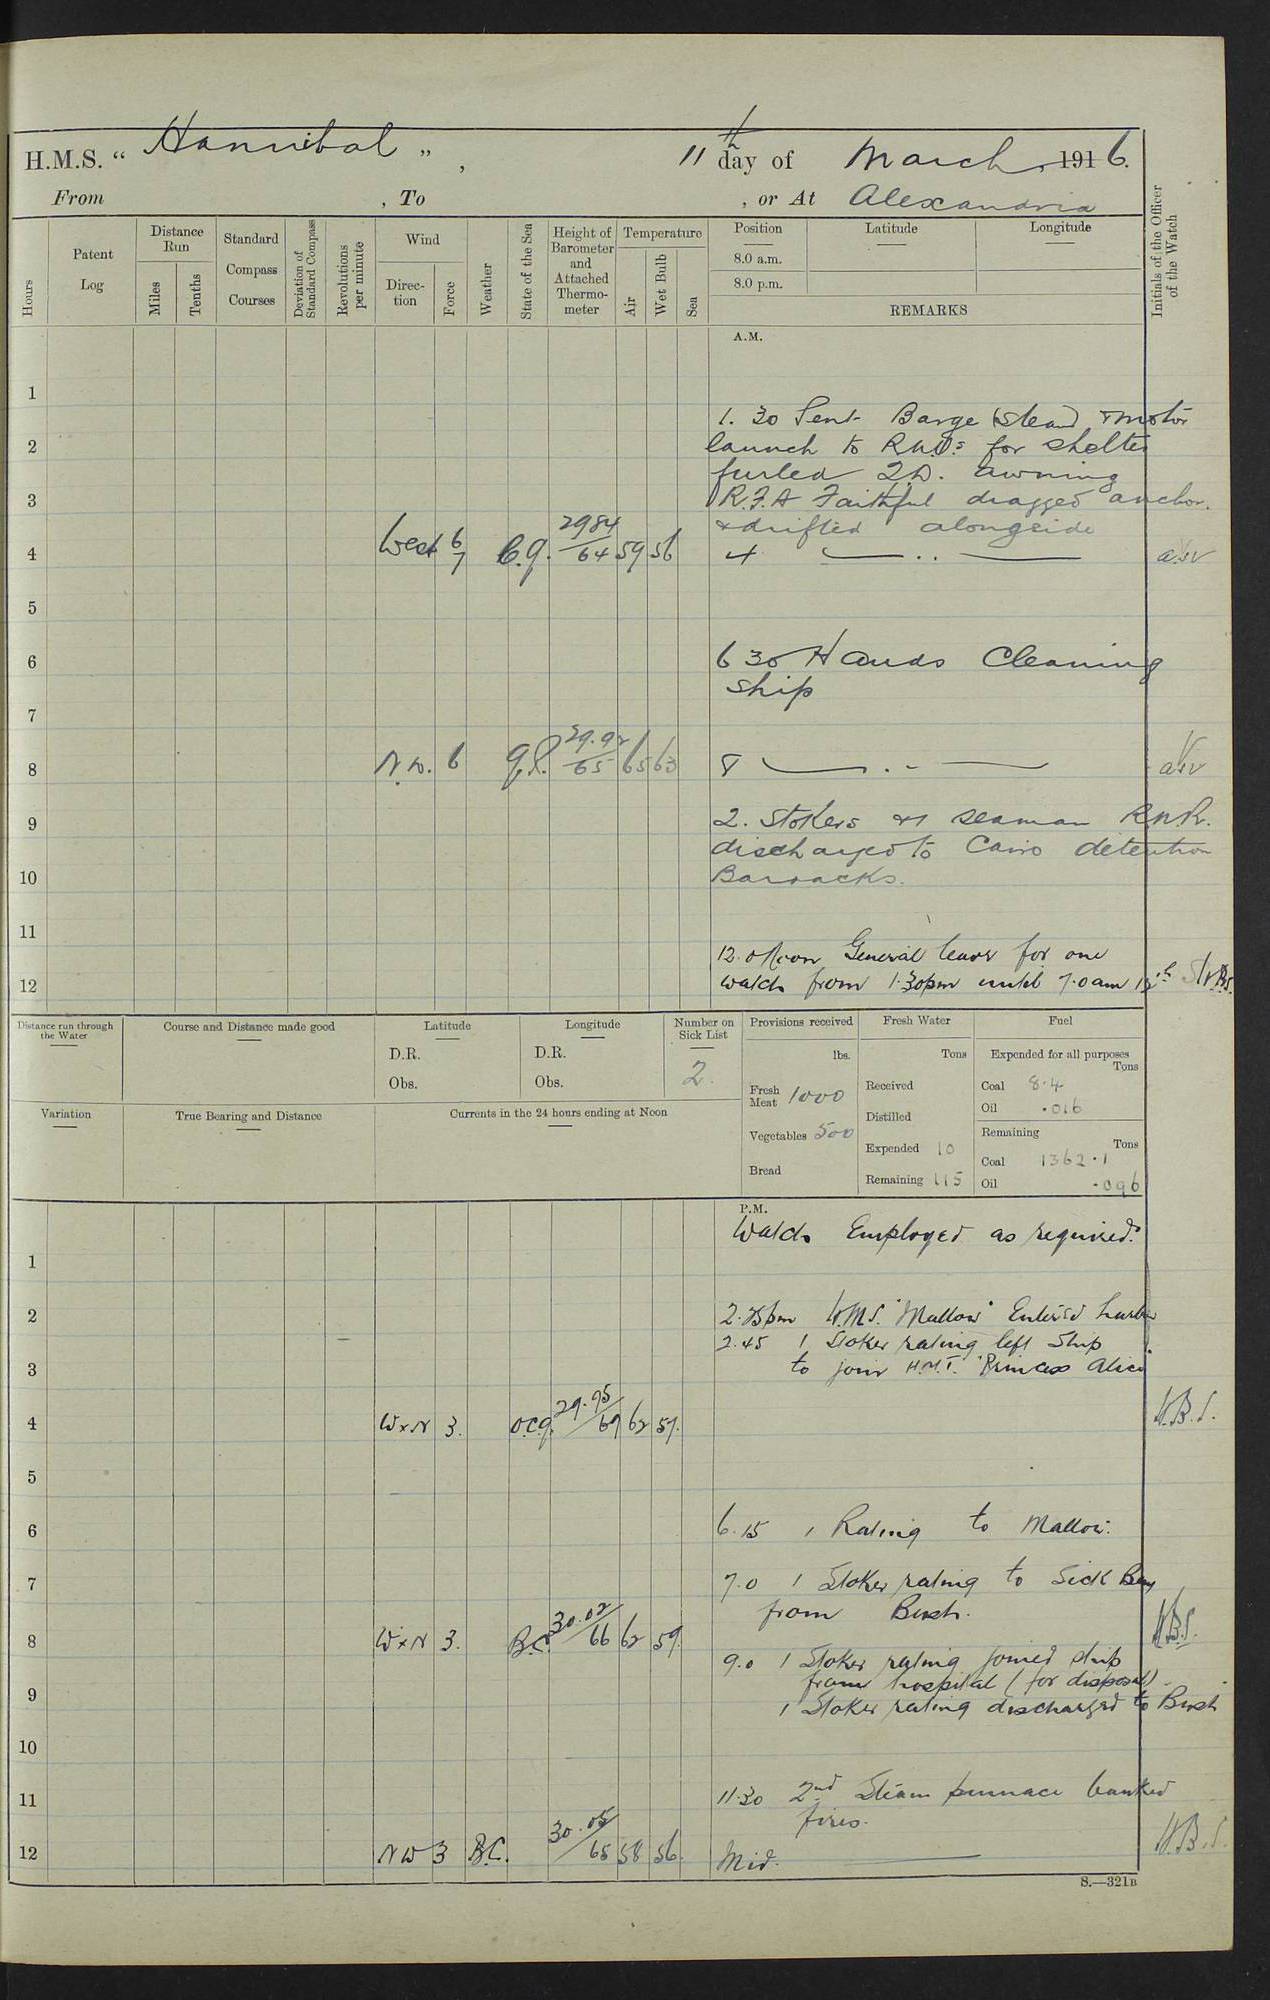 H.M.S. “ Hannibal ” , 11th day of March, 1916.
From , To , or At Alexandria
Hours
Patent Log
Distance Run
Miles
Tenths
Standard Compass Courses
Deviation of Standard Compass
Revolutions per minute
Wind
Direction
Force
Weather
State of the Sea
Height of Barometer and Attached Thermometer
Temperature
Air
Wet Bulb
Sea
Position
8.0 a.m.
8.0 p.m.
Latitude
Longitude
REMARKS
Initials of the Officer of the Watch
A.M.
1
1.30 Sent Barge (Steam) & motor
2 launch to R.N.D.s for shelter
furled Q.D. awning
3 R.F.A Faithful dragged anchor.
& drifted alongside
4 West 6/7 C.q. 2984/64 59 56 4 — .. —
5
6 6 30 Hands Cleaning
ship
7
8 N.W. 6 29.92/65 65 63 8 — .. —
9 2. Stokers & 1 seaman R.N.R.
discharged to Cairo detention
10 Barracks.
11
12.0 Noon General leave for one
12 watch from 1.30pm until 7.0am 12th
Distance run through the Water
Course and Distance made good
Latitude
D.R.
Obs.
Longitude
D.R.
Obs.
Number on Sick List
2.
Provisions received
lbs.
Fresh Meat 1000
Vegetables 500
Bread
Fresh Water
Tons
Received
Distilled
Expended 10
Remaining 115
Fuel
Expended for all purposes
Tons
Coal 8.4
Oil .016
Remaining
Tons
Coal 1362.1
Oil .096
Variation
True Bearing and Distance
Currents in the 24 hours ending at Noon
P.M.
Watch Employed as required.
1
2 2.25pm H.M.S. "Mallow" Entered harbor
2.45 1 Stoker rating left Ship
3 to join H.M.T. "Princess Alice"
4 W x N 3. o.c.q. 29.95/69 62 57. H.B.S.
5
6 6.15 1 Rating to Mallow.
7 7.0 1 Stoker rating to Sick Bay
from Bush.
8 W x N 3. B.C. 30.02/66 62 59. H.B.S.
9.0 1 Stoker rating joined ship
from hospital (for disposal)
9 1 Stoker rating discharged to Bush
10
11 11.30 2nd Steam pinnace banked
fires.
12 NW 3 B.C. 30.05/65 58 56. Mid. — H.B.S.
S.—321B